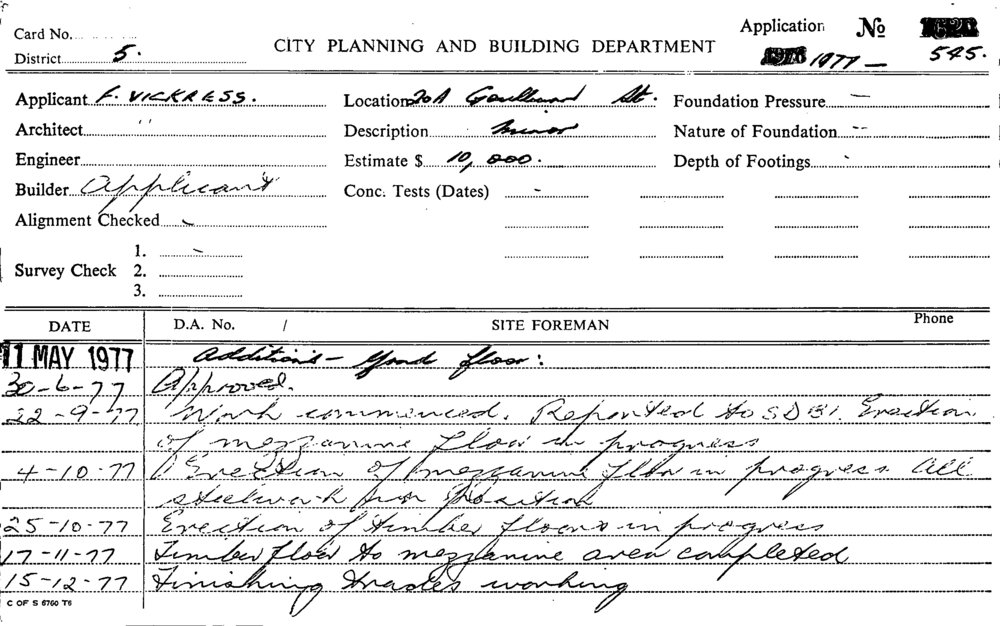 Card No.
District 5.
CITY PLANNING AND BUILDING DEPARTMENT
Application No
1977 — 545.
Applicant F. VICKRESS. Location 20A Goulburn St. Foundation Pressure —
Architect " Description Minor Nature of Foundation --
Engineer Estimate $ 10,000. Depth of Footings -
Builder Applicant Conc. Tests (Dates) -
Alignment Checked -
Survey Check 1. - 2. 3.
DATE D.A. No. / SITE FOREMAN Phone
11 MAY 1977 Additions — Grnd floor:
30-6-77 Approved.
22-9-77 Work commenced. Reported to S.D.B.I. Erection
of mezzanine floor in progress
4-10-77 Erection of mezzanine floor in progress All
steelwork in position
25-10-77 Erection of timber floors in progress
17-11-77 Timber floor to mezzanine area completed
15-12-77 Finishing trades working
C OF S 6760 T6